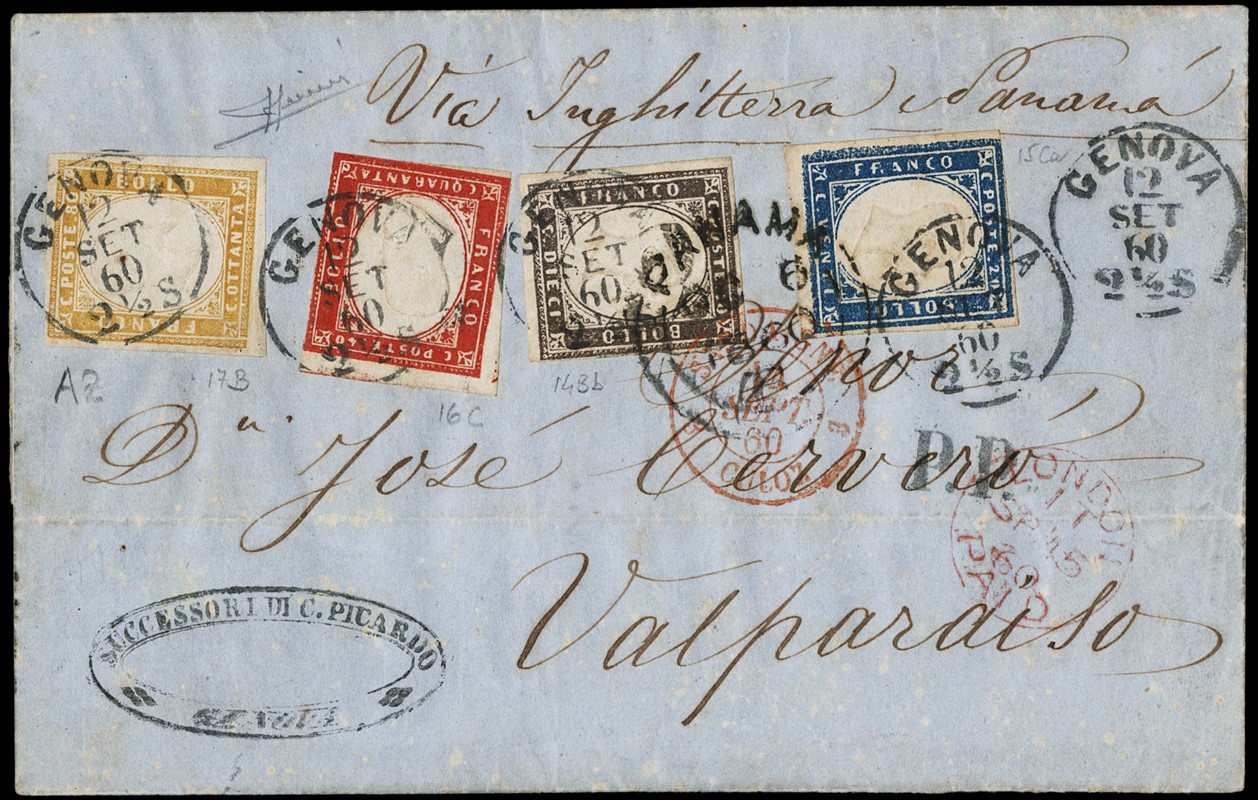 Via Inghilterra e Panamá
15Ca
GENOVA
12
SET
60
2½S
GENOVA
12
SET
60
2½S
BOLLO
C.POSTE 80
C.OTTANTA
FRAN
GENOVA
SET
60
C.QUARANTA
BOLLO
FRANCO
C.POSTE 40
GEN
12
SET
60
FRANCO
C.POSTE 10
C.DIECI
BOLLO
PANAMA
1860
FRANCO
C.POSTE 20
BOLLO
GENOVA
12
60
2½S
A2
17B
16C
14Bb
SEPT
60
CULOZ
P.P.
Dn José Cerveró
LONDON
60
PAID
Valparaiso
SUCCESSORI DI C. PICARDO
GENOVA